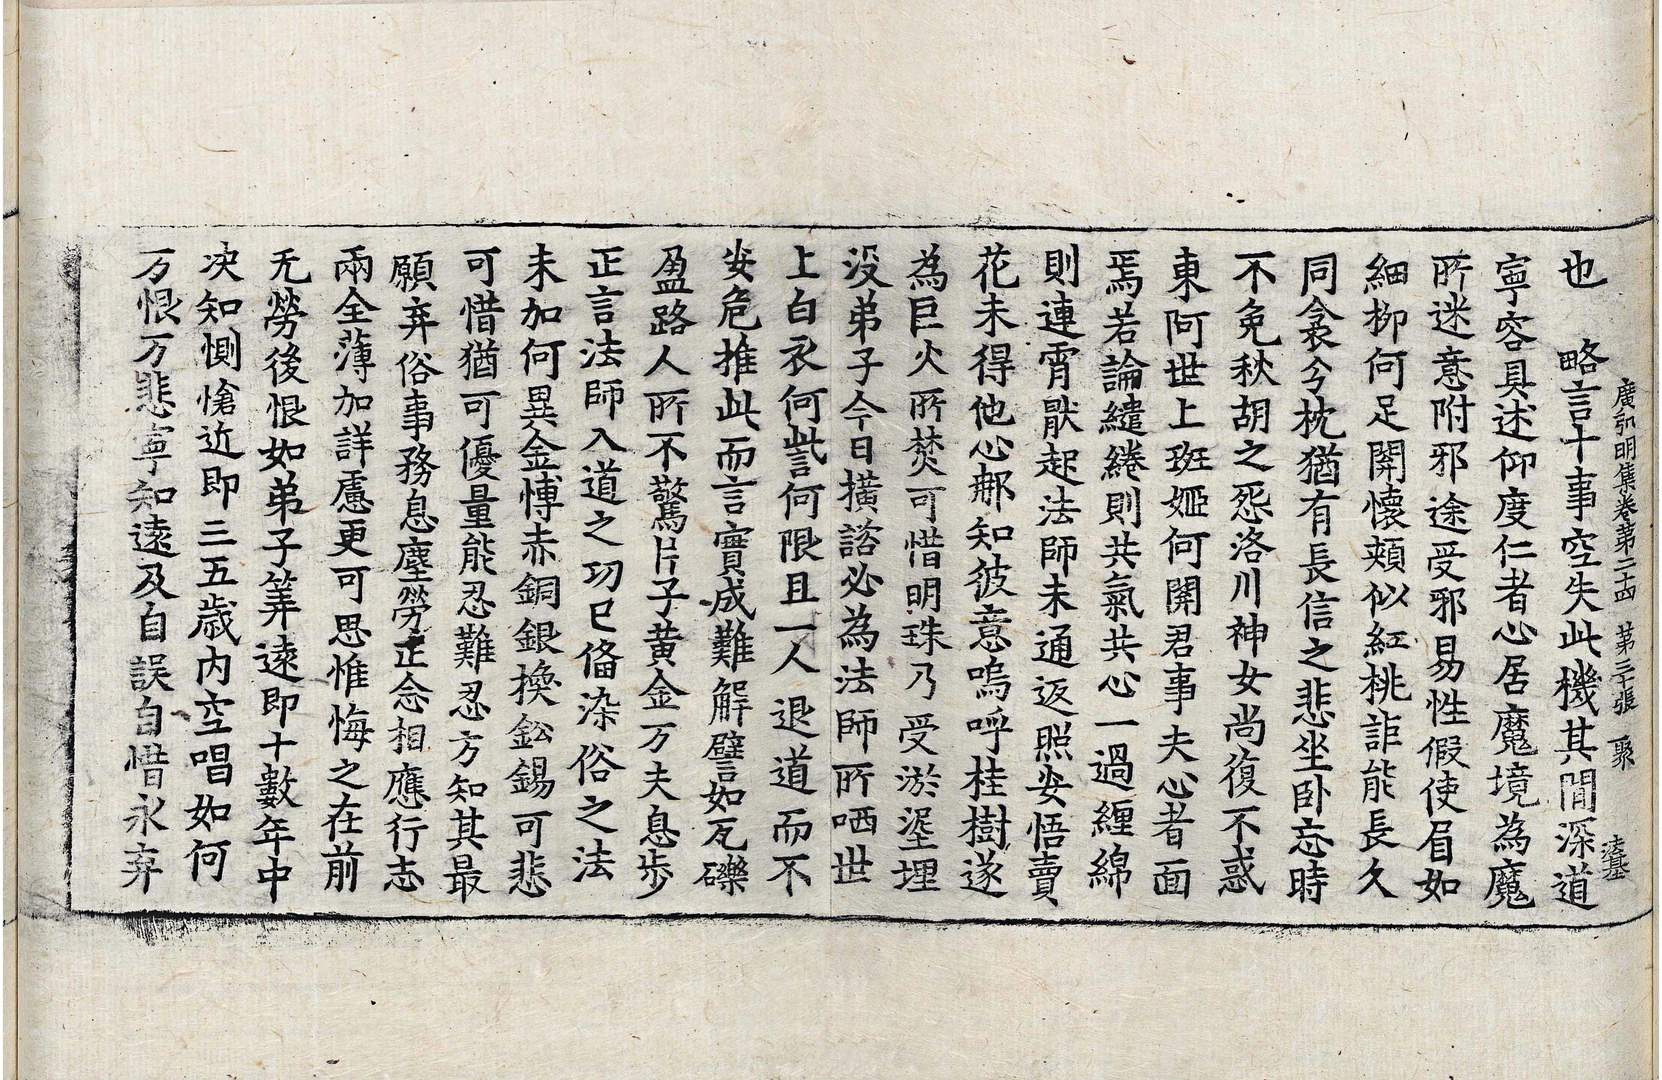 廣弘明集卷第二十四　第三十張　聚
也　略言十事空失此機其閒深道
寧容具述仰度仁者心居魔境為魔
所迷意附邪途受邪易性假使眉如
細柳何足關懷頰似紅桃詎能長久
同衾分枕猶有長信之悲坐卧忘時
不免秋胡之怨洛川神女尚復不惑
東阿世上班姬何關君事夫心者面
焉若論繾綣則共氣共心一過纏綿
則連霄猒起法師未通返照安悟賣
花未得他心那知彼意嗚呼桂樹遂
為巨火所焚可惜明珠乃受淤埿埋
没弟子今日橫諮必為法師所哂世
上白衣何訾何限且一人退道而不
安危推此而言實成難解譬如瓦礫
盈路人所不驚片子黄金万夫息步
正言法師入道之功已俻染俗之法
未加何異金博赤銅銀換鈆錫可悲
可惜猶可優量能忍難忍方知其最
願弃俗事務息塵勞正念相應行志
兩全薄加詳慮更可思惟悔之在前
无勞後恨如弟子筭遠即十數年中
决知惻愴近即三五歲内空唱如何
万恨万悲寧知遠及自誤自惜永弃